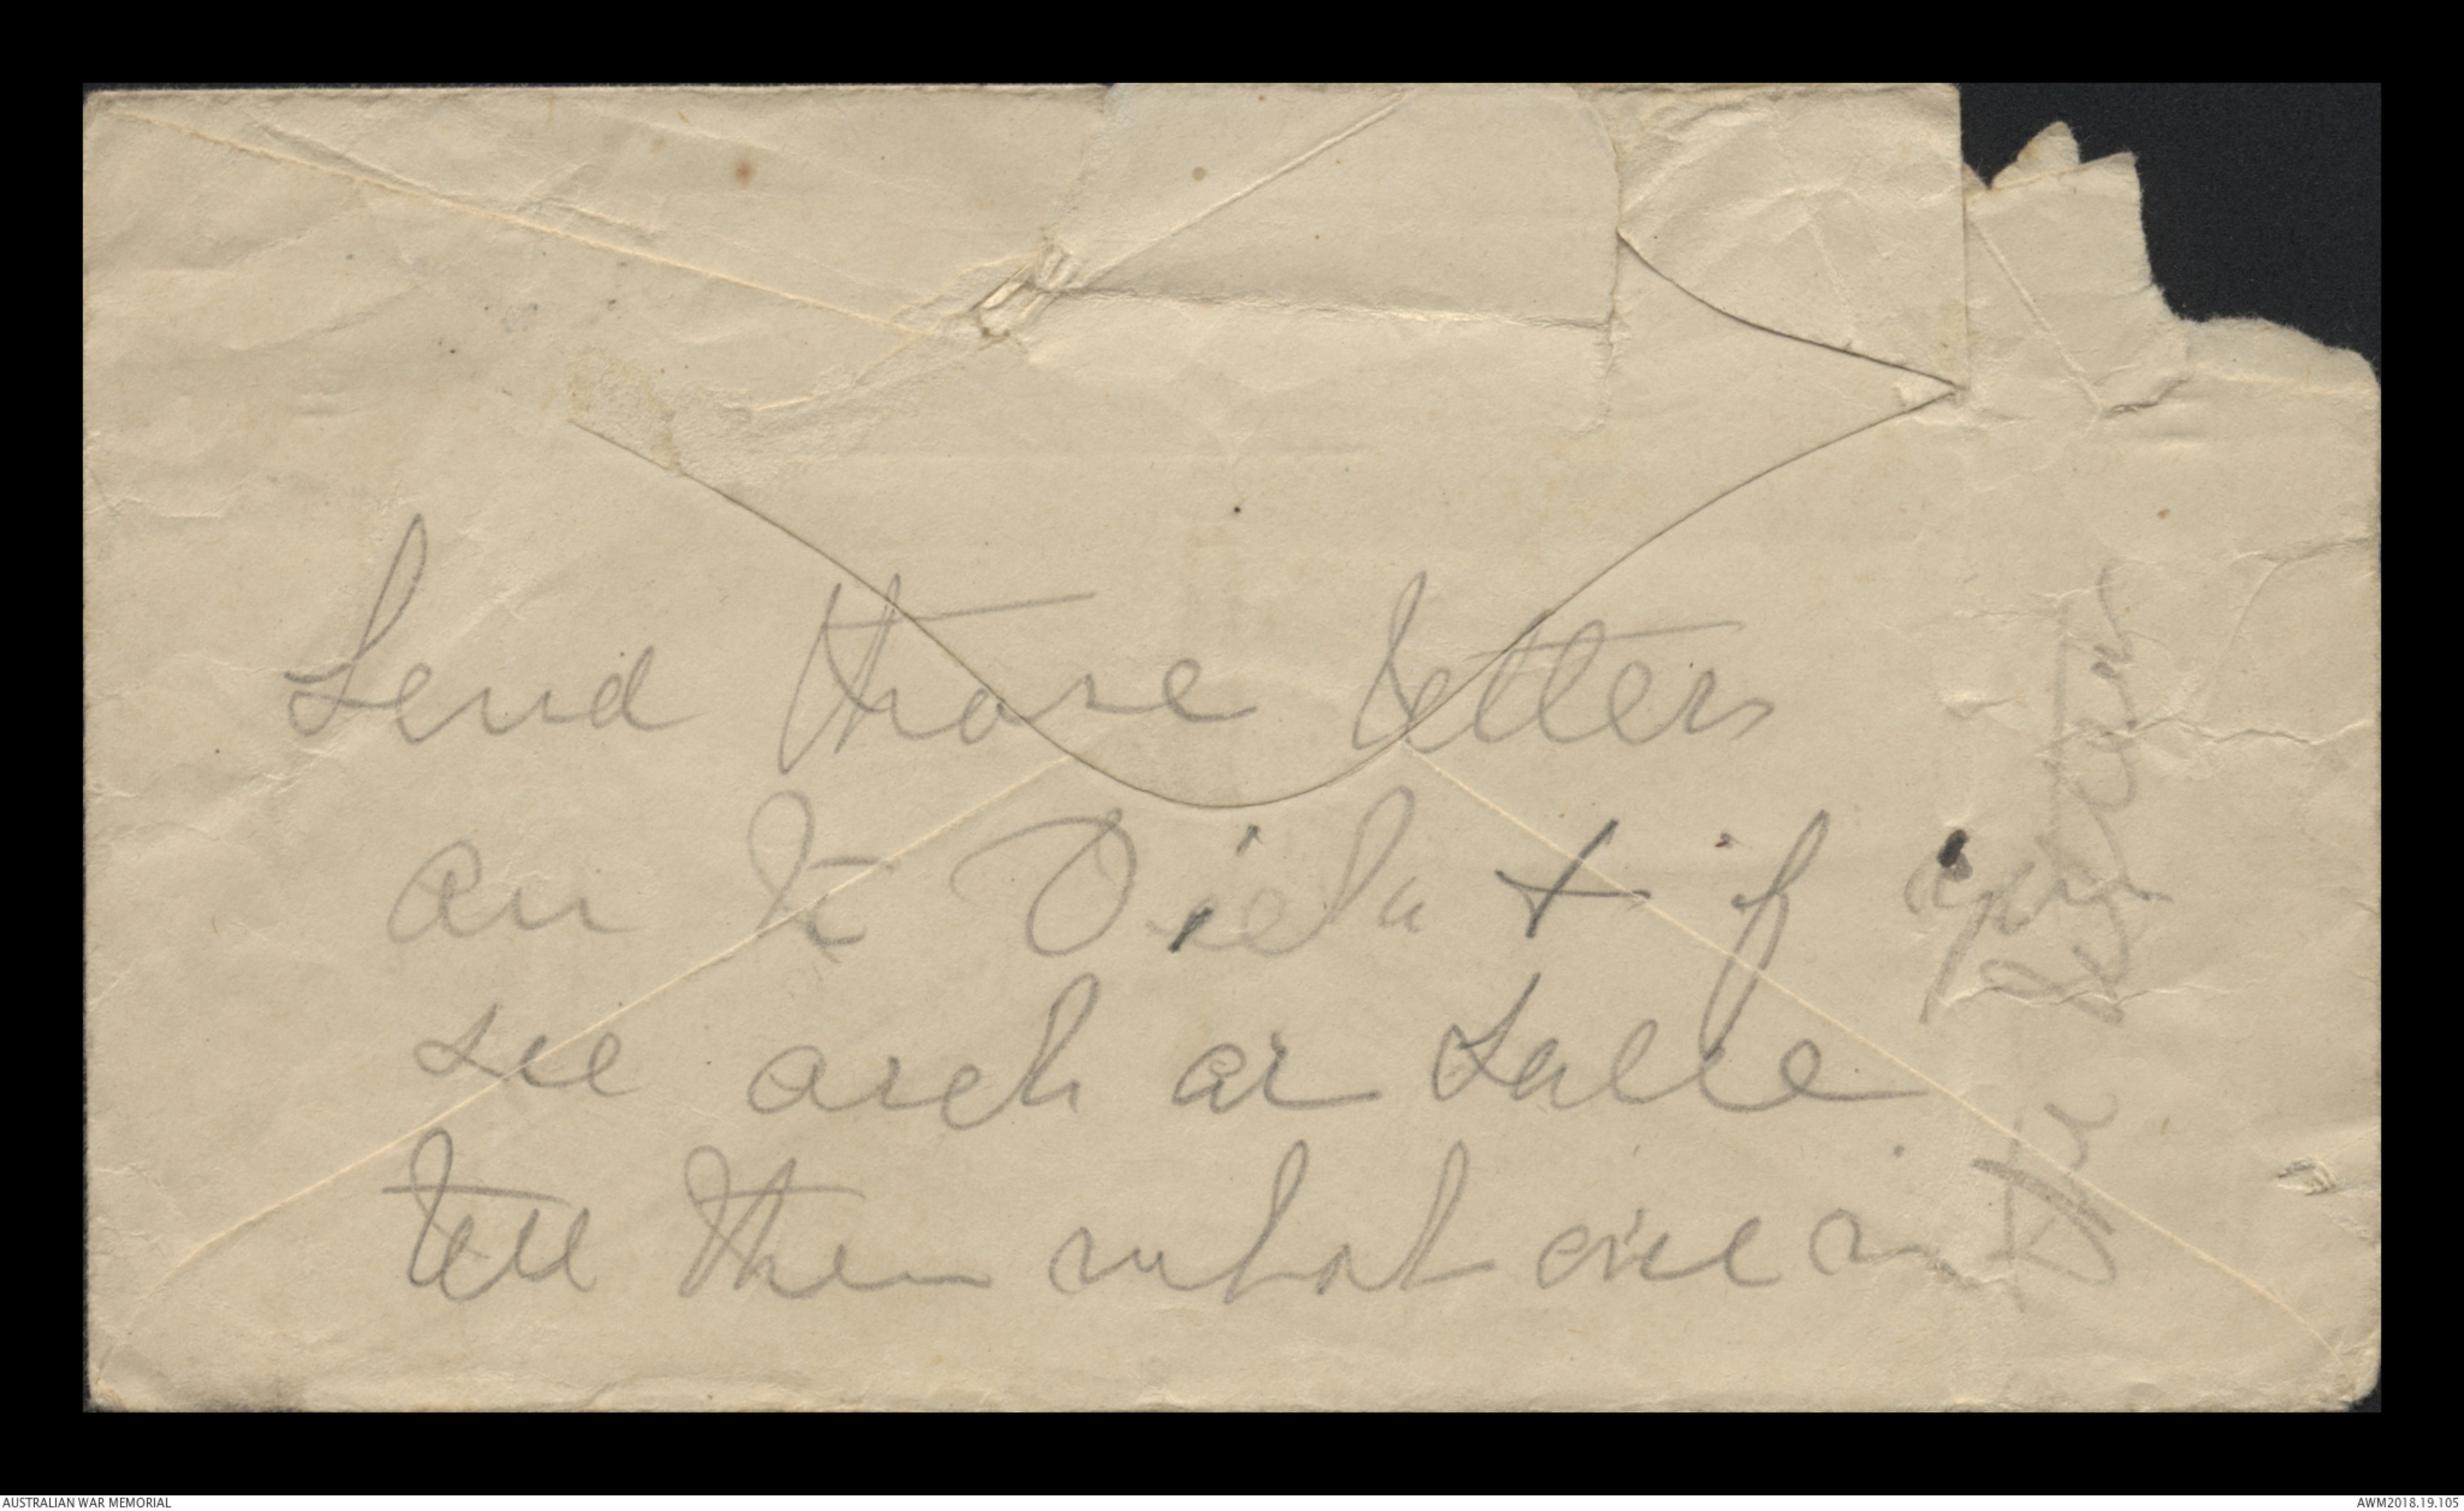 Send those letters
on to Viola + if you
see arch or Salle
tell them what one is
the letter
AUSTRALIAN WAR MEMORIAL
AWM2018.19.105